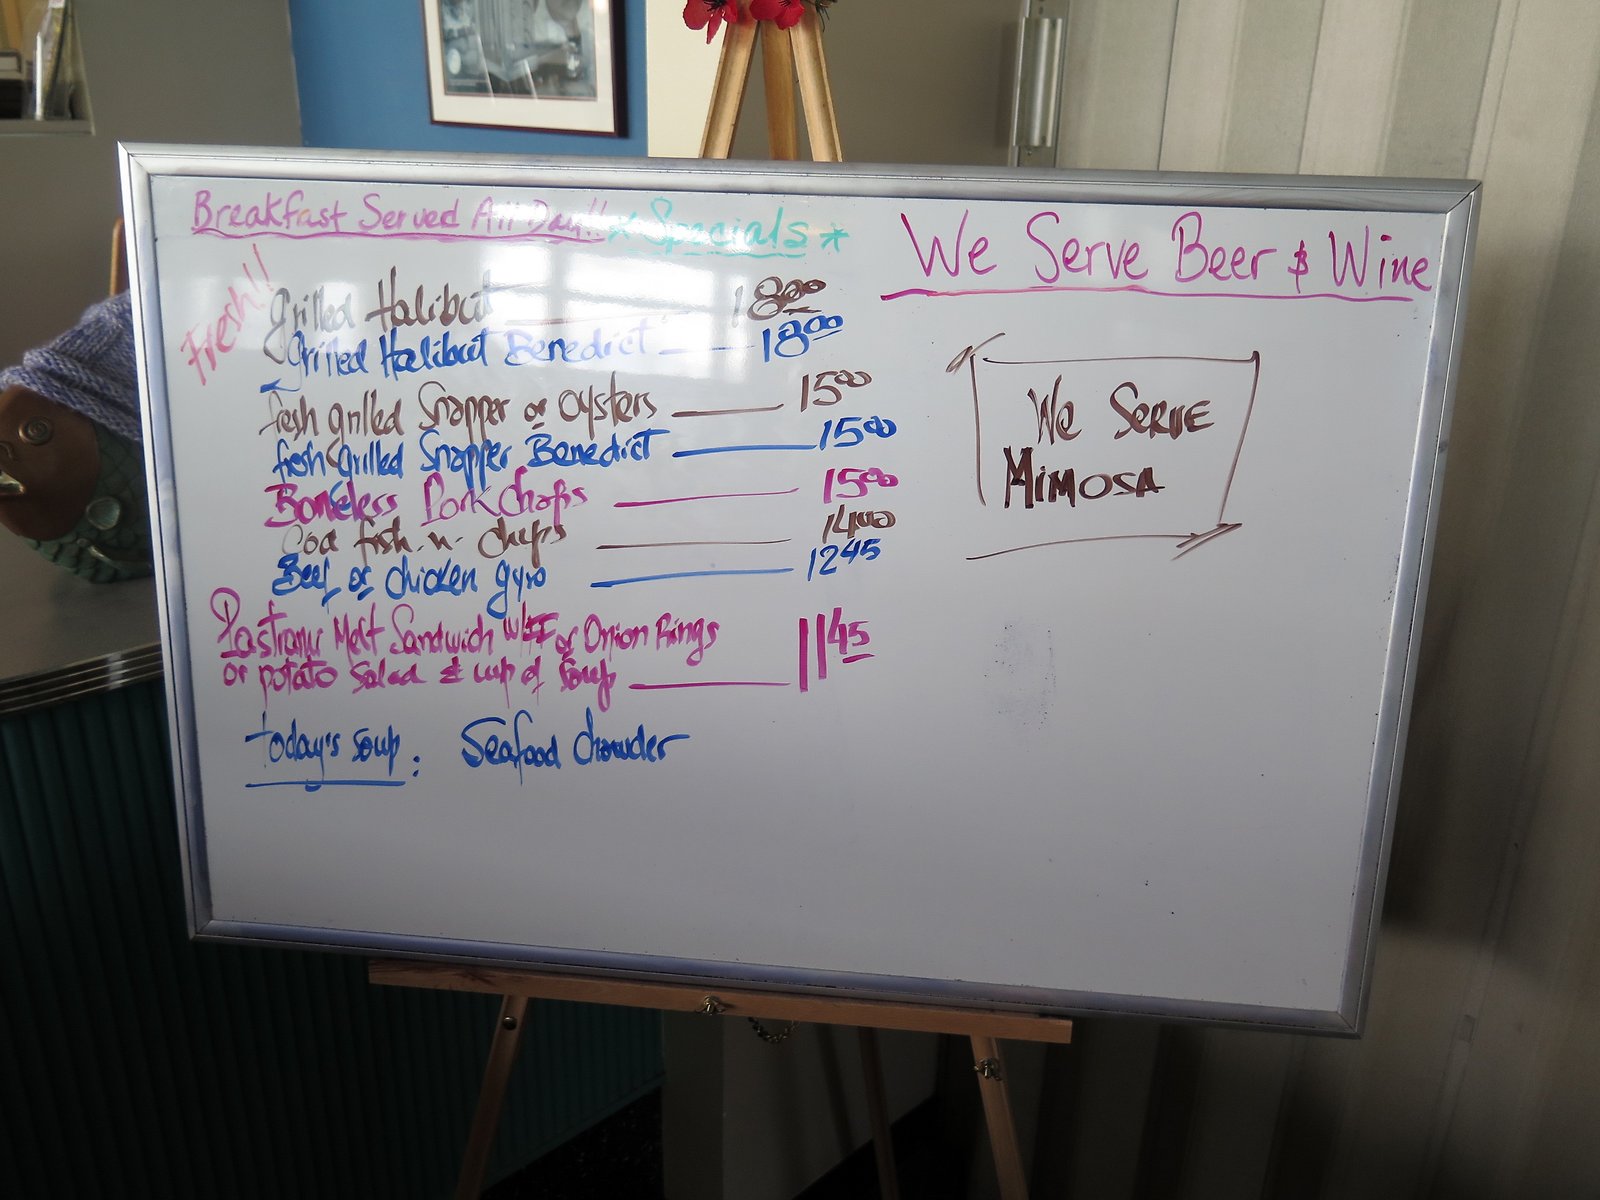 Breakfast Served All Day!! * Specials *
Fresh!!
Grilled Halibut 18.00
Grilled Halibut Benedict 18.00
fresh grilled Snapper or Oysters 15.00
fresh Grilled Snapper Benedict 15.00
Boneless Pork Chops 15.00
Cod fish.n. chips 14.00
Beef or chicken gyro 12.45
Pastrami Melt Sandwich W/FF or Onion Rings
or potato Salad & cup of Soup 11.45
today's Soup: Seafood Chowder
We Serve Beer & Wine
We SERVE
MIMOSA